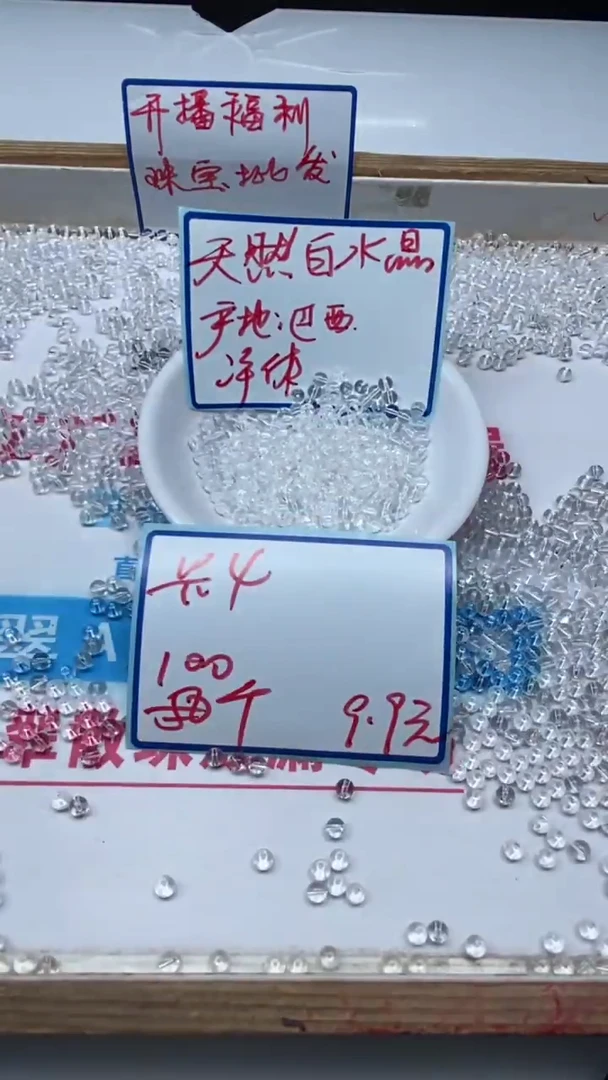 开播福利
珠宝批发
天然白水晶
产地:巴西.
净体
长4
100
9.9元
翠 A